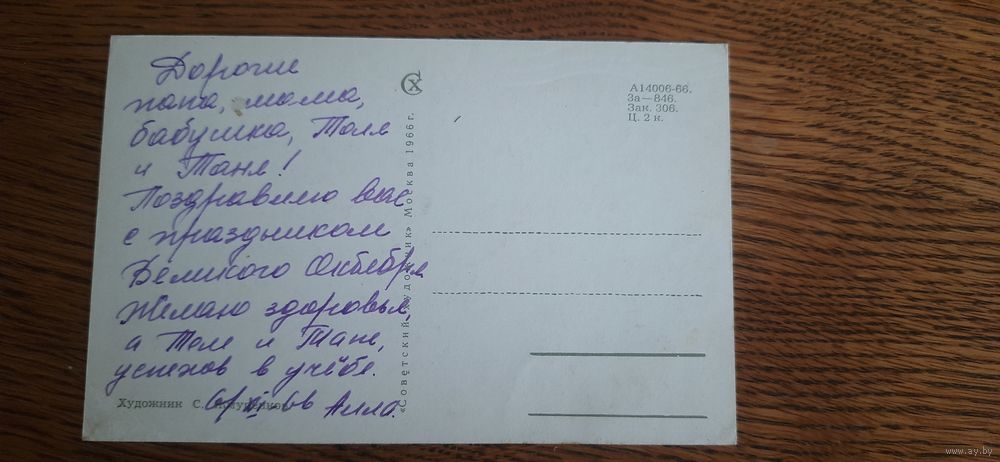 Дорогие
папа, мама,
бабушка, Толя
и Таня!
Поздравляю вас
с праздником
Великого Октября
Желаю здоровья,
а Толе и Тане,
успехов в учёбе.
Алла.
Художник С.
«Советский художник» Москва 1966 г.
СХ
А14006-66.
За—846.
Зак. 306.
Ц. 2 к.
www.ay.by